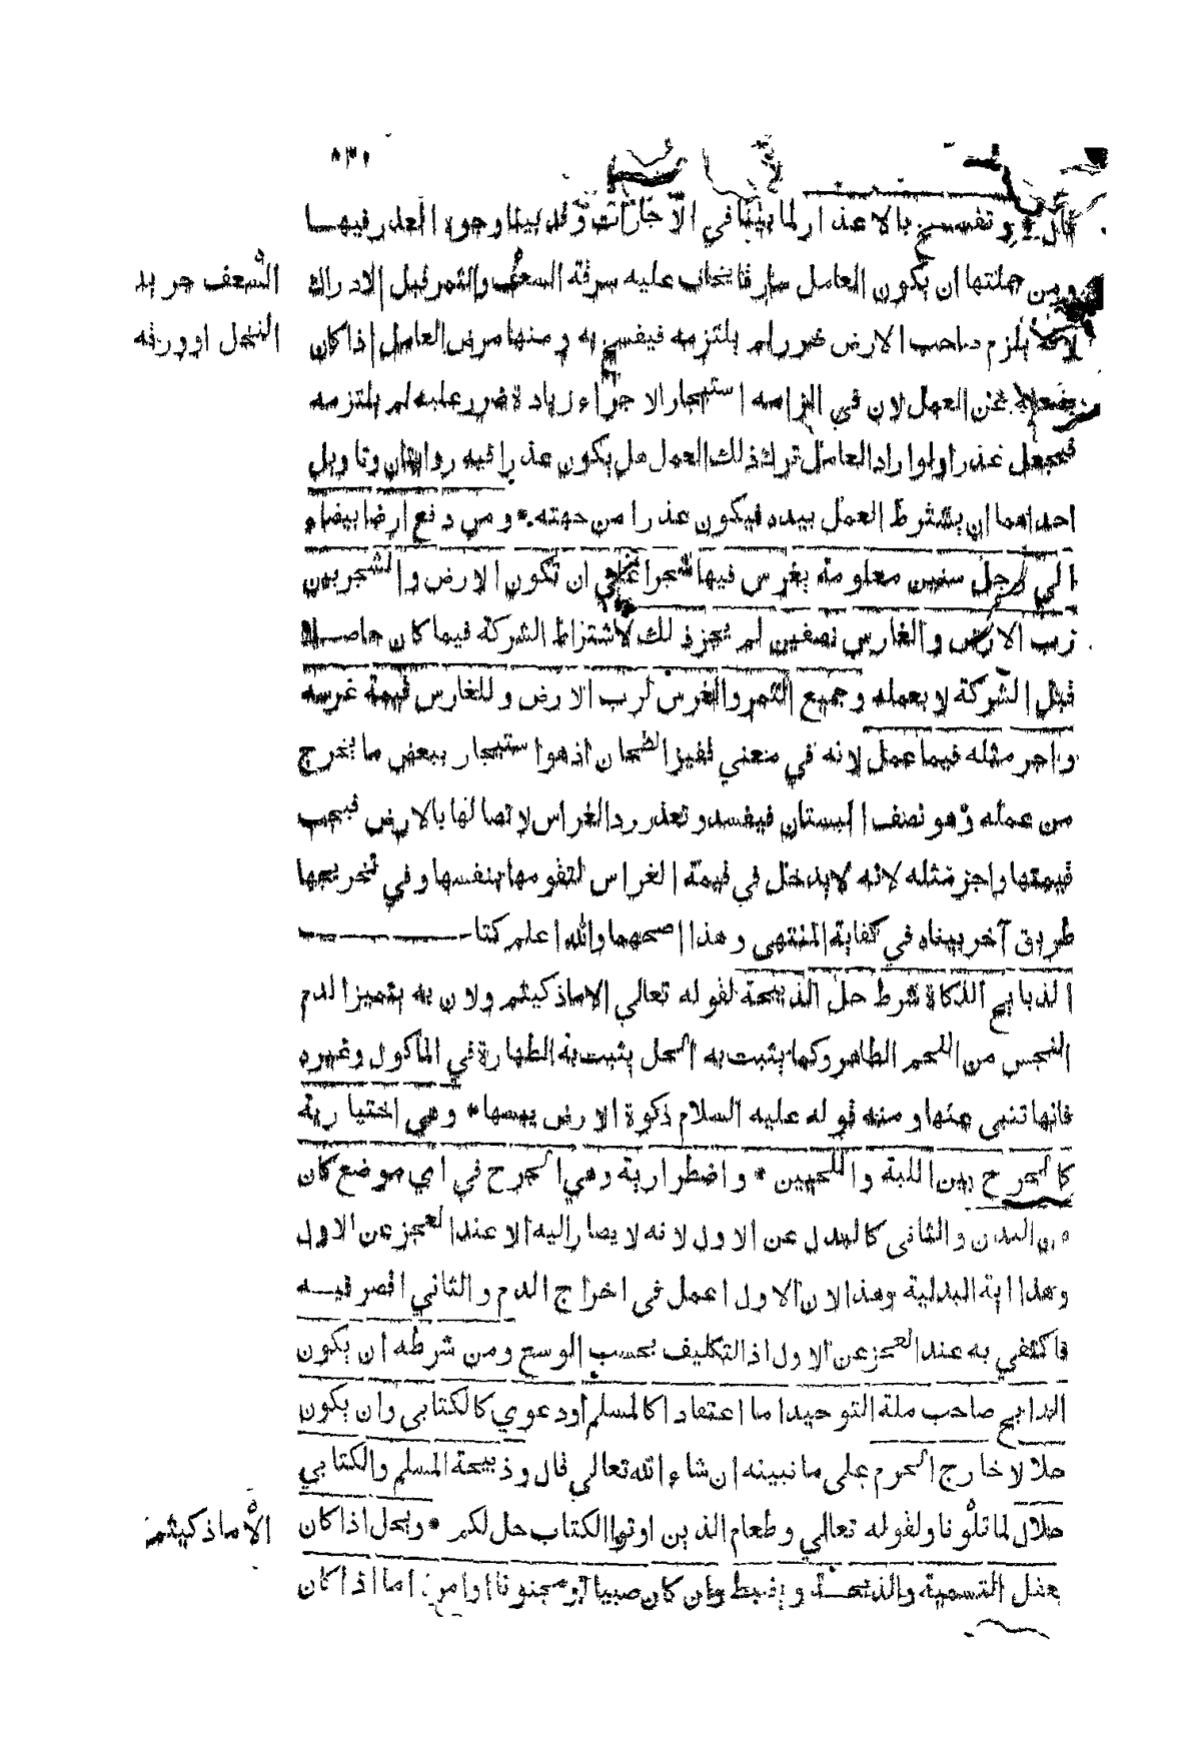 ٥٣١
قال وتفسخ بالاعذار لما بينا في الاجارات وقد بينا وجوه العذر فيهـا
ومن جملتها ان يكون العامل سارقا يخاف عليه سرقة السعف والثمر قبل الادراك
السّعف جريد
لانه يلزم صاحب الارض ضررا لم يلتزمه فيفسخ به ومنها مرض العامل اذا كان
النخل اوورقه
يضعفه عن العمل لان في الزامه استيجار الاجراء زيادة ضرر عليه لم يلتزمه
فيجعل عذرا ولو اراد العامل ترك ذلك العمل هل يكون عذرا فيه روايتان وتاويل
احداهما ان يشترط العمل بيده فيكون عذرا من جهته * ومن دفع ارضا بيضاء
الي رجل سنين معلومة يغرس فيها شجرا علي ان تكون الارض والشجر بين
رب الارض والغارس نصفين لم يجز ذلك لاشتراط الشركة فيما كان حاصـلا
قبل الشركة لا بعمله وجميع الثمر والغرس لرب الارض وللغارس قيمة غرسه
واجر مثله فيما عمل لانه في معني قفيز الطحان اذ هو استيجار ببعض ما يخرج
من عمله وهو نصف البستان فيفسد وتعذر رد الغراس لاتصالها بالارض فيجب
قيمتها واجر مثله لانه لا يدخل في قيمة الغراس لتقومها بنفسها وفي تخريجها
طريق آخر بيناه في كفاية المنتهي وهذا اصحهما والله اعلم كتاـــــــــب
الذبايح الذكاة شرط حل الذبيحة لقوله تعالي الا ماذكيتم ولان به يتميز الدم
النجس من اللحم الطاهر وكما يثبت به الحل يثبت به الطهارة في الماكول وغيره
فانها تنبي عنها ومنه قوله عليه السلام ذكوة الارض يبسها * وهي اختيارية
كالجرح بين اللبة واللحيين * واضطرارية وهي الجرح في اي موضع كان
من البدن والثاني كالبدل عن الاول لانه لا يصار اليه الا عند العجز عن الاول
وهذا اية البدلية وهذا لان الاول اعمل في اخراج الدم والثاني اقصر فيـه
فاكتفي به عند العجز عن الاول اذ التكليف بحسب الوسع ومن شرطه ان يكون
الذابح صاحب ملة التوحيد اما اعتقادا كالمسلم او دعوي كالكتابي وان يكون
حلالا خارج الحرم علي ما نبينه ان شاء الله تعالي قال وذبيحة المسلم والكتابي
حلال لما تلونا ولقوله تعالي وطعام الذين اوتوا الكتاب حل لكم * ويحل اذا كان
الا ماذكيتم
يعقل التسمية والذبيحـة ويضبط وان كان صبيا او مجنونا او امرأة اما اذا كان